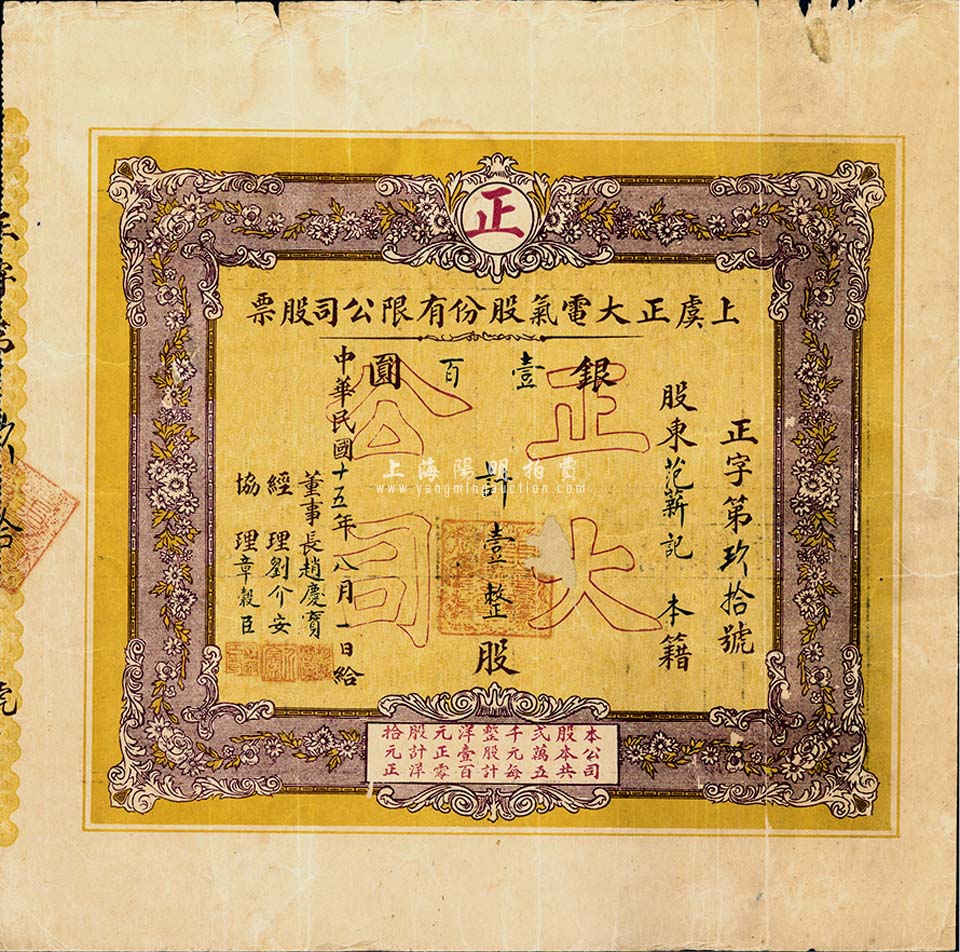 正
上虞正大電氣股份有限公司股票
正字第玖拾號
股東范薪記 本籍
銀壹百圓
計壹整股
中華民國十五年八月一日給
董事長趙慶寶
經理劉介安
協理章穀臣
正大公司
本公司
股本共
弍萬五
千元每
整股計
洋壹百
元正零
股計洋
拾元正
上海陽明拍賣
www.yangmingauction.com